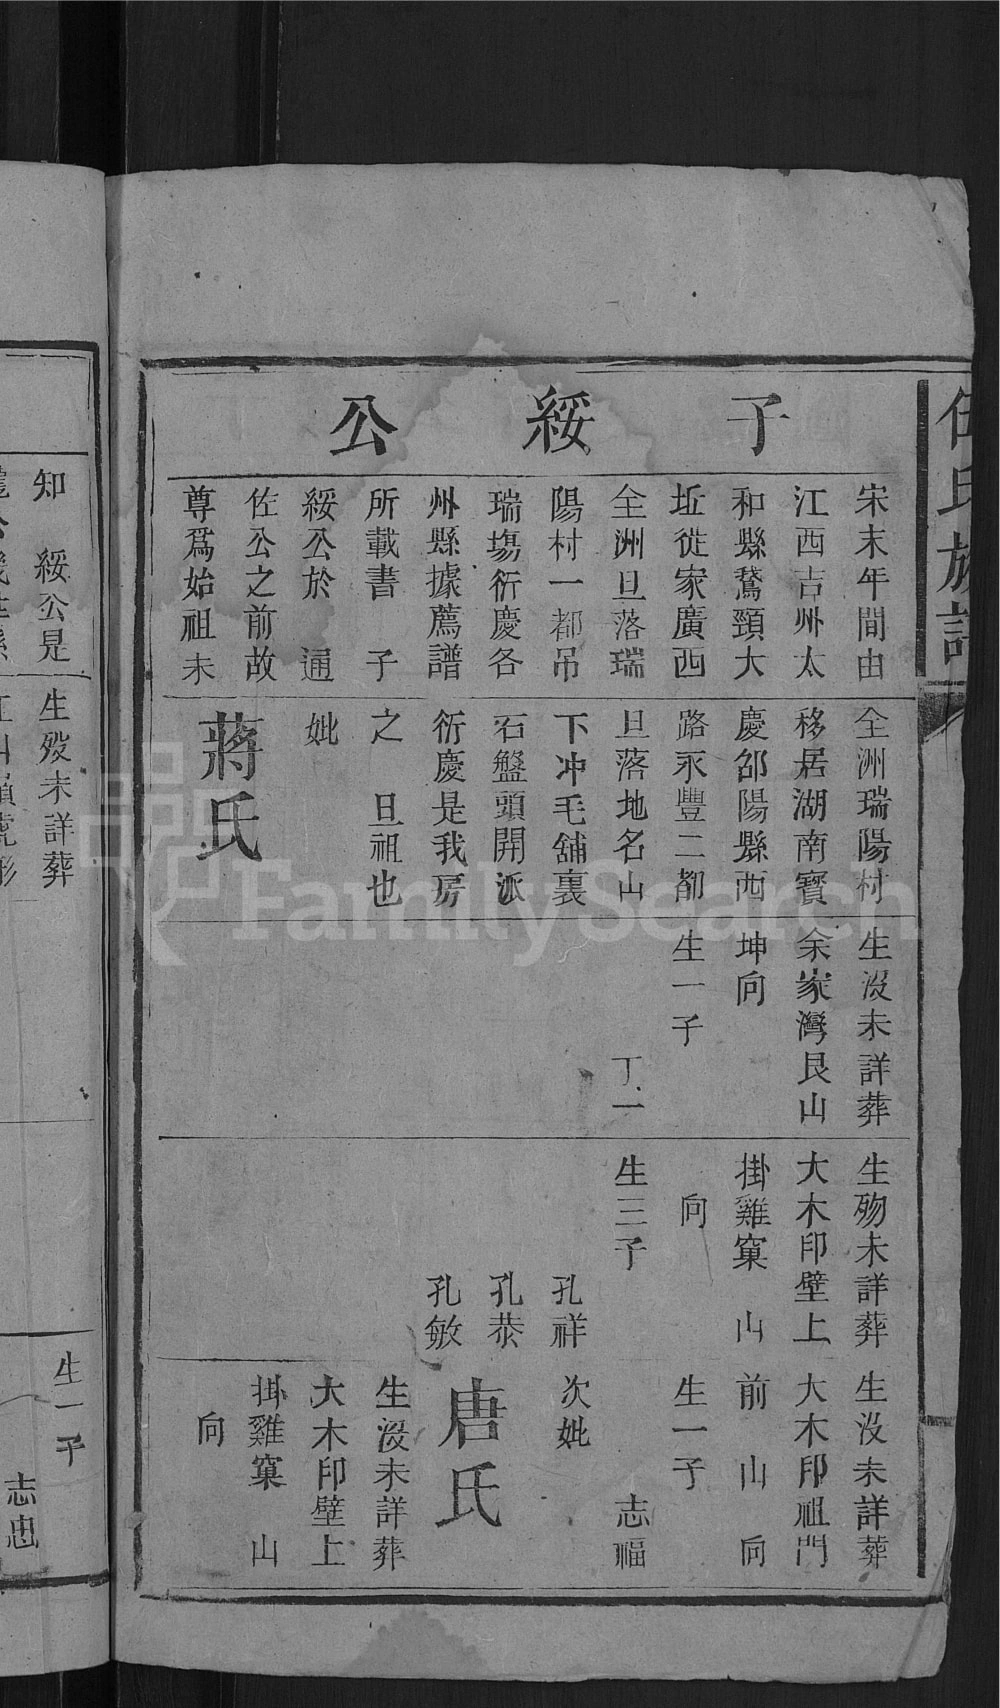 伍氏族譜
子綏公
宋末年間由
江西吉州太
和縣鵞頸大
坵徙家廣西
全洲旦落瑞
陽村一都吊
瑞塲衍慶各
州縣據薦譜
所載書　子
綏公於　通
佐公之前故
尊爲始祖未
全洲瑞陽村
移居湖南寶
慶邵陽縣西
路永豐二都
旦落地名山
下冲毛舖裏
石盤頭開派
衍慶是我房
之　旦祖也
妣
蔣氏
生沒未詳葬
余家灣艮山
坤向
生一子
丁一
生歿未詳葬
大木印壁上
掛雞窠　山
向
生三子
孔祥
孔恭
孔敏
生沒未詳葬
大木印祖門
前　山　向
生一子
志福
次妣
唐氏
生沒未詳葬
大木印壁上
掛雞窠　山
向
知　綏公是
生歿未詳葬
生一子
志忠
FamilySearch